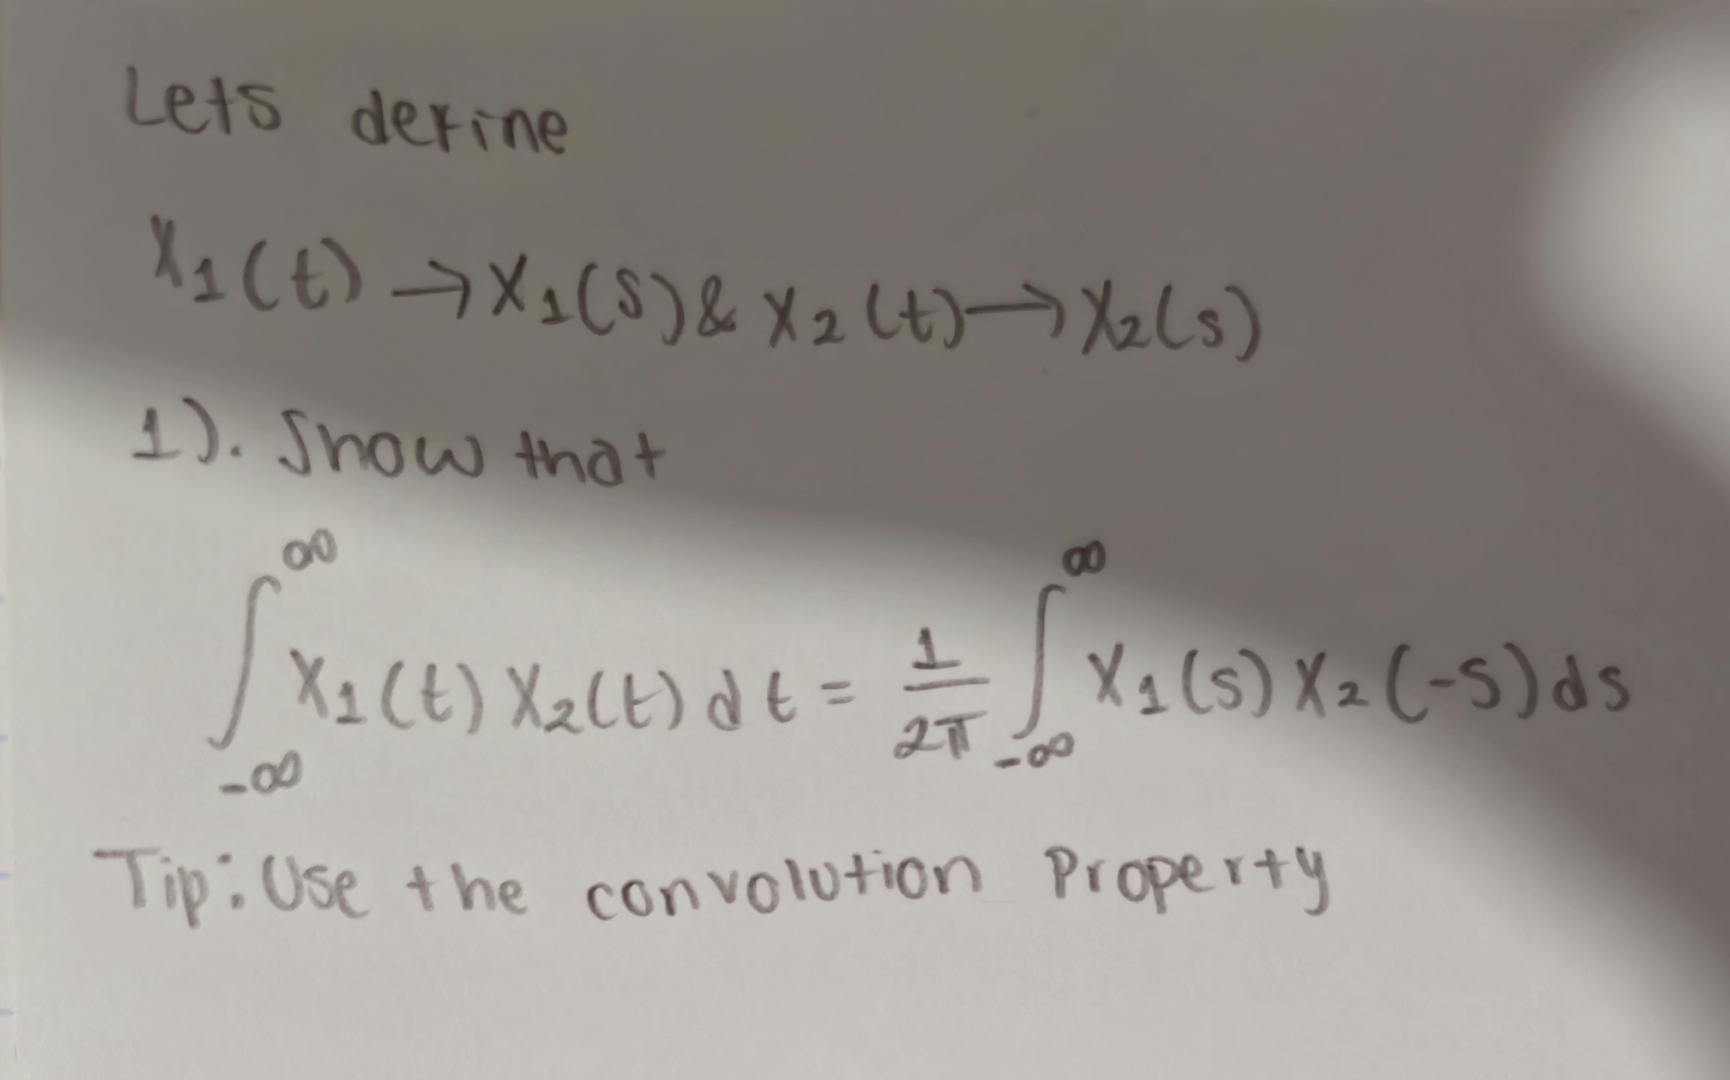 Lets define
X₁(t) → X₁(S) & X₂(t) → X₂(s)
1). Show that
∫_{-∞}^{∞} X₁(t) X₂(t) dt = \frac{1}{2π} ∫_{-∞}^{∞} X₁(s) X₂(-s) ds
Tip: Use the convolution Property